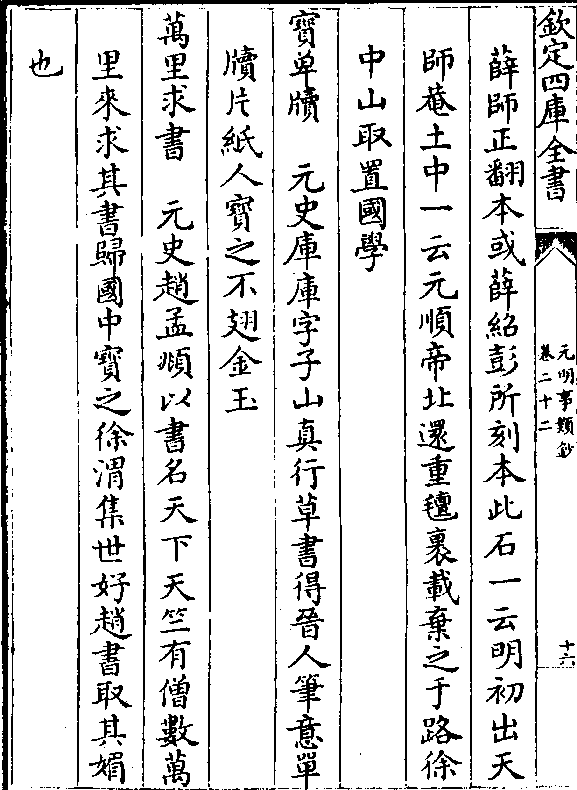 欽定四庫全書
元明事類鈔
卷二十二
十六
薛師正翻本或薛紹彭所刻本此石一云明初出天
師菴土中一云元順帝北還重氊裹載棄之于路徐
中山取置國學
寳單牘　元史庫庫字子山真行草書得晉人筆意單
牘片紙人寳之不翅金玉
萬里求書　元史趙孟頫以書名天下天竺有僧數萬
里來求其書歸國中寳之徐渭集世好趙書取其媚
也